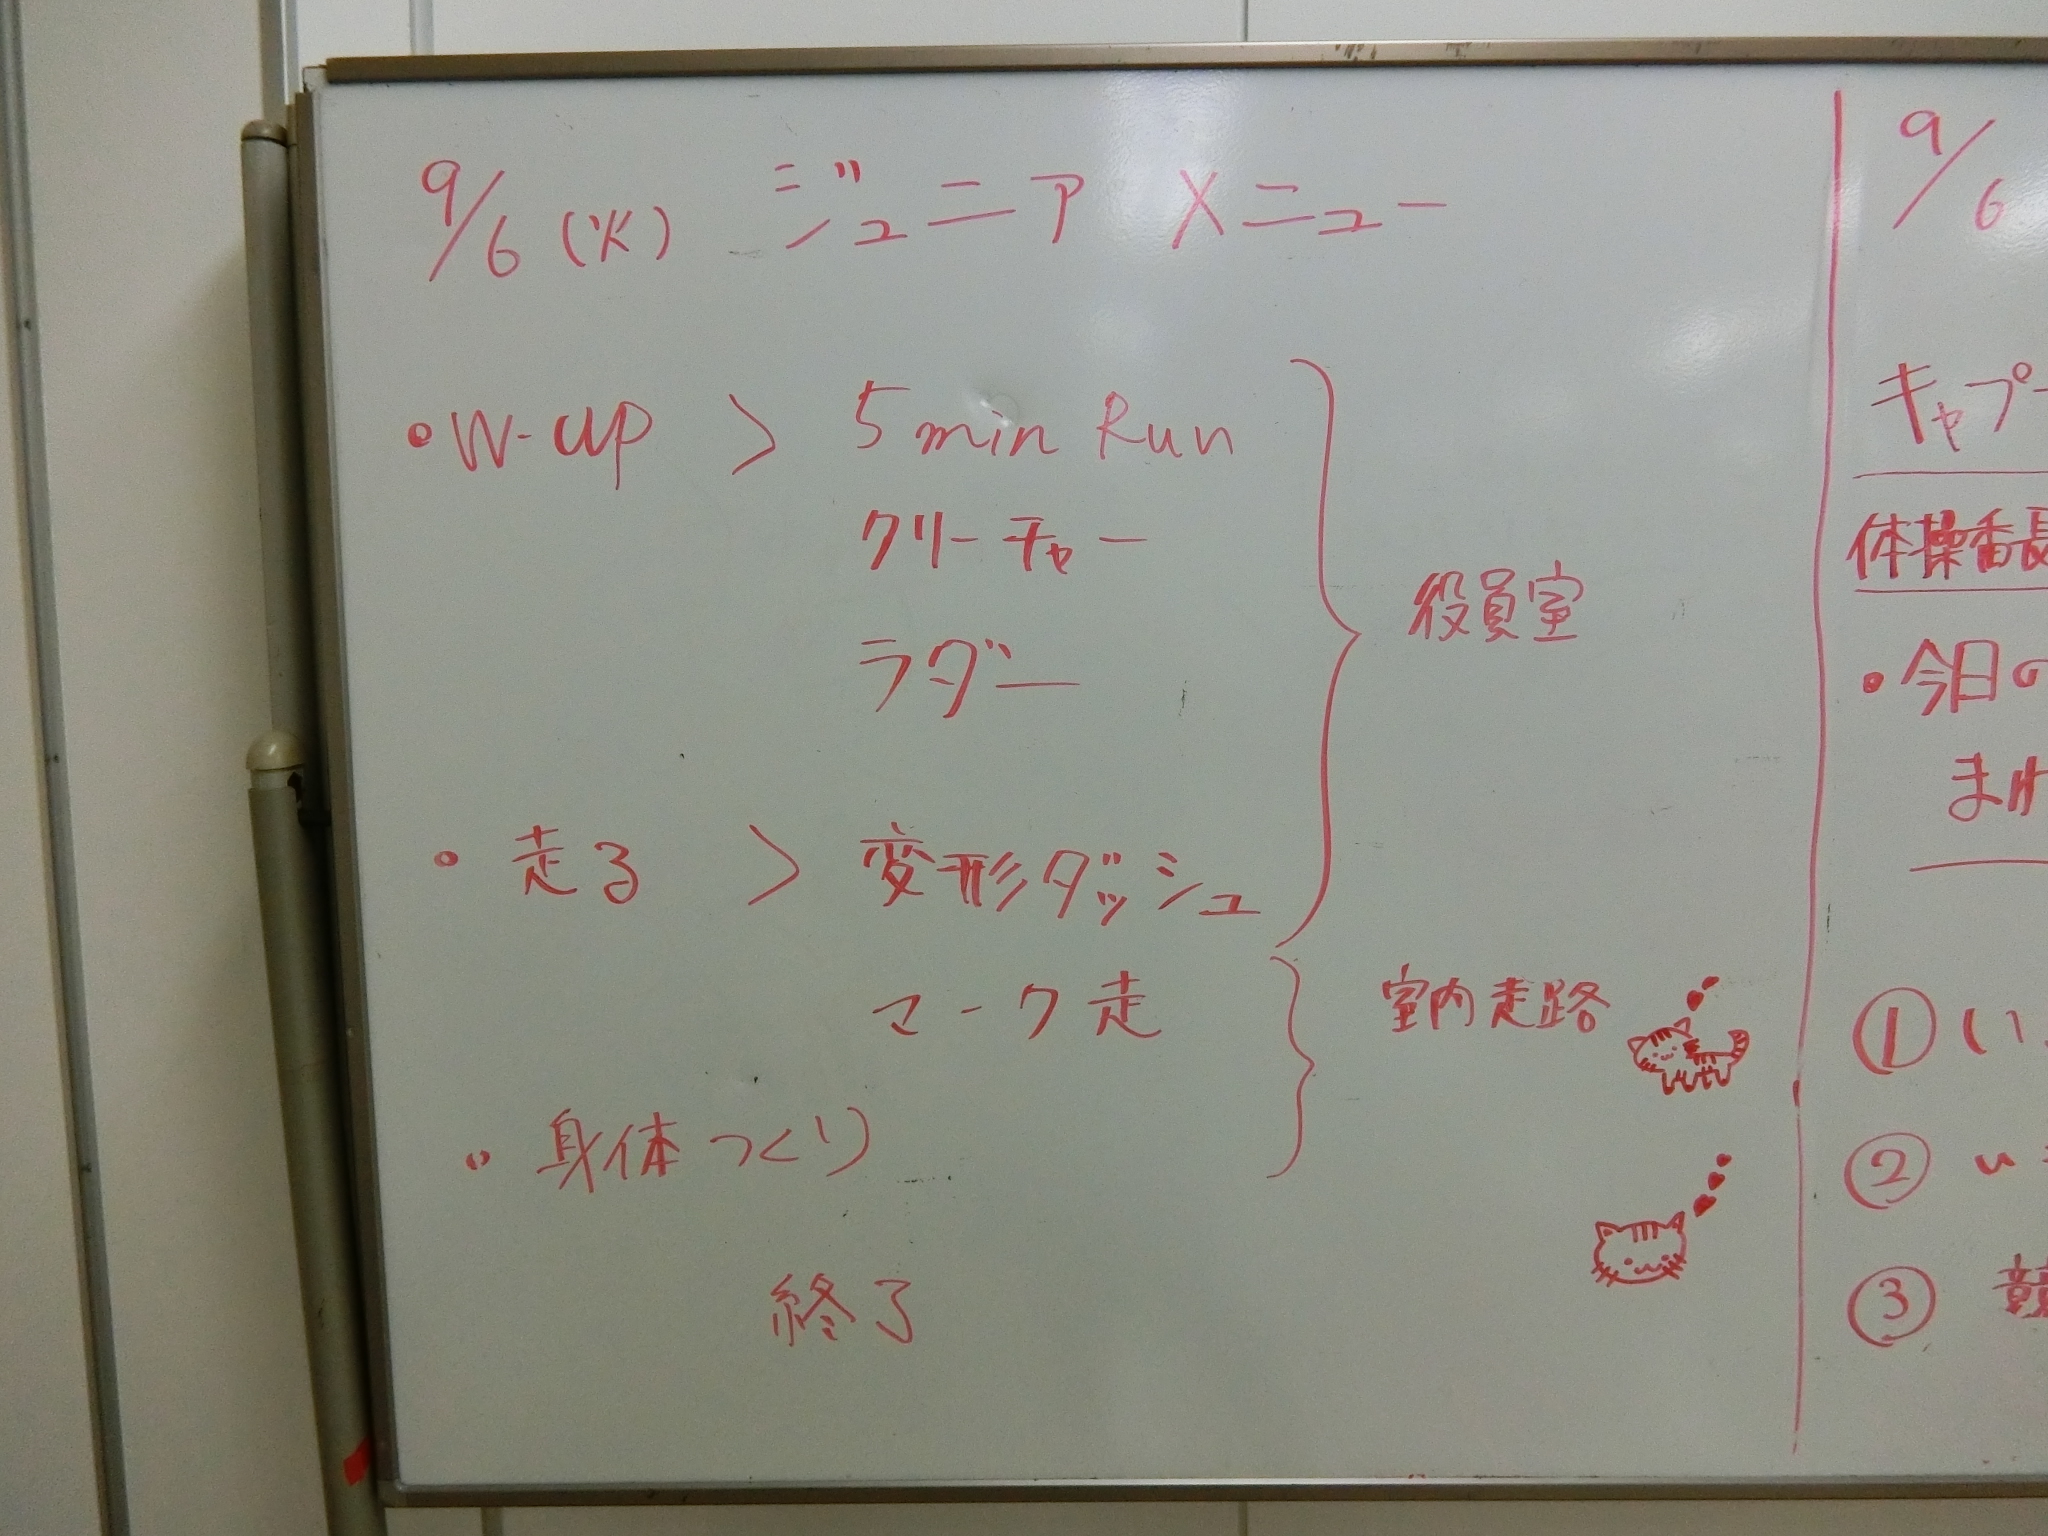 9/6(火) ジュニア メニュー
・W-up > 5min Run
クリーチャー
ラダー
役員室
・走る > 変形ダッシュ
マーク走
室内走路
・身体つくり
終了
9/6
キャプ
体操番長
・今日の
まれ
① い
② い
③